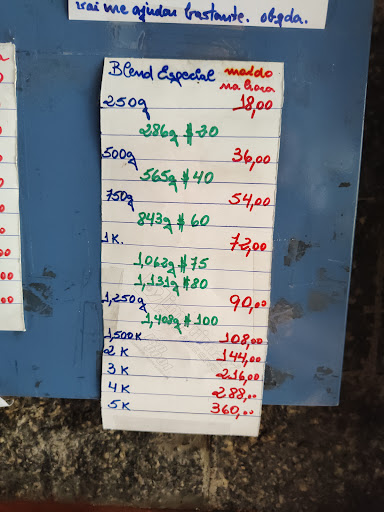 vai me ajudar bastante. obgda.
Blend Especial moído na hora
250g 18,00
286g $20
500g 36,00
565g $40
750g 54,00
843g $60
1K. 72,00
1,062g $75
1,131g $80
1,250g 90,00
1,408g $100
1,500K 108,00
2K 144,00
3K 216,00
4K 288,00
5K 360,00
00
00
00